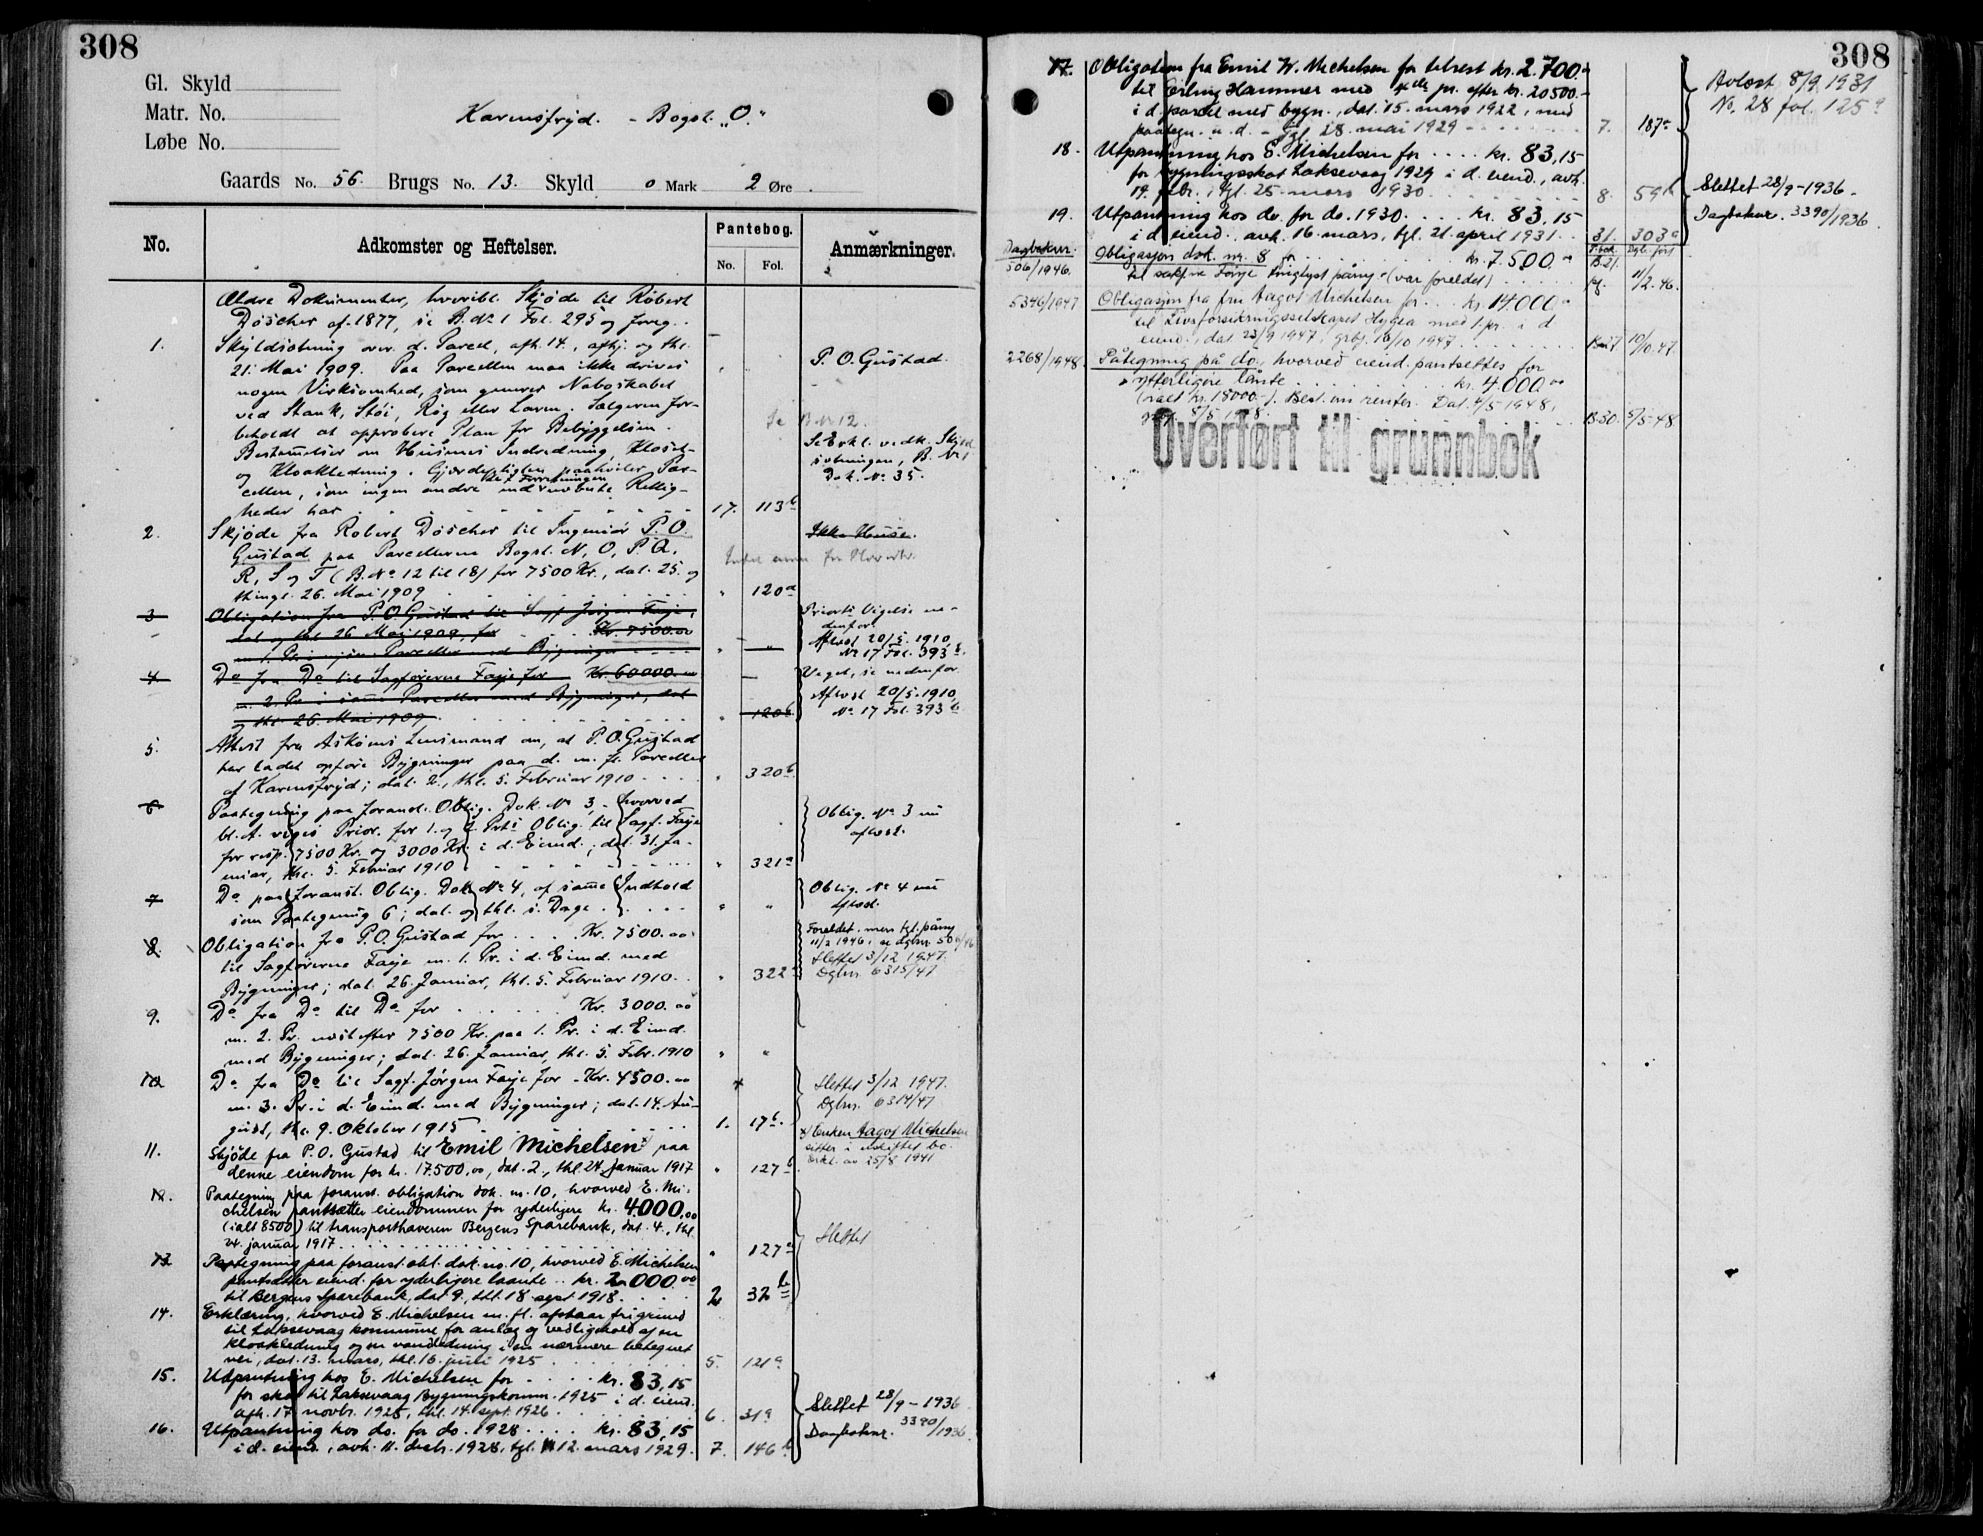 308
Gl. Skyld
Matr. No.
Løbe No.
Karensfryd. - Bogst. „O."
Gaards No. 56. Brugs No. 13. Skyld 0 Mark 2 Øre.
No.
Adkomster og Heftelser.
Pantebog.
No. Fol.
Anmærkninger.
Ældre Dokumenter, hvoribl. Skjøde til Robert
Döscher af 1877, se B. No 1 Fol. 295 og foreg.
1. Skyldsætning over d. Parcel, afh. 14., afhj. og thl.
21. Mai 1909. Paa Parcellen maa ikke drives
nogen Virksomhed, som generer Naboskabet
ved Stank, Støi, Røg eller Larm. Sælgeren for-
beholdt at approbere Plan for Bebyggelsen.
Bestemmelser om Husenes Indredning, Kloset-
og Kloakledning. Gjerdepligten paahviler Par-
cellen, som ingen andre ved Forretningen indrømmede Rettig-
heder har 17. 113b
P. O. Gustad.
Se B. No 12.
Se Erkl. vedk. Skyld
sætningen, B. No 1
Dok. No 35.
2. Skjøde fra Robert Döscher til Ingeniør P. O.
Gustad paa Parcellerne Bogst. N, O, P, Q,
R, S og T (B. No 12 til 18) for 7500 Kr., dat. 25. og
thingl. 26. Mai 1909 " 120a
Ikke Huse.
3 Obligation fra P. O. Gustad til Sagf. Jørgen Faye,
dat. og thl. 26. Mai 1909, for Kr. 7500.00
m. 1. Pr. i Parceller med Bygninger " "
Priorts Vigelse ne-
denfor
Aflæst 20/5 1910
No 17 Fol. 393b.
4 Do fra Do til Sagførerne Faye for Kr. 60000.00
m. 2. Pr. i samme Parceller med Bygninger, dat.
og thl. 26. Mai 1909 " 120b
Veget, se nedenfor
Aflæst 20/5 1910,
No 17 Fol. 393b.
5. Attest fra Askøens Lensmand om, at P. O. Gustad
har ladet opføre Bygninger paa d. m. fl. Parceller
af Karensfryd; dat. 2., thl. 5. Februar 1910 " 320b
6 Paategning paa foranst. Oblig. Dok. No 3, hvorved
bl. A. viges Prior. for 1. og 2. Prts Oblig. til Sagf. Faye
for resp. 7500 Kr. og 3000 Kr. i d. Eiend.; dat. 31. Ja-
nuar, thl. 5. Februar 1910 " 321a
Oblig. No 3 nu
aflæst.
7 Do paa foranst. Oblig. Dok. No 4, af samme Indhold
som Paategning 6; dat. og thl. s. Dage. " "
Oblig. No 4 nu
aflæst.
8. Obligation fra P. O. Gustad for Kr. 7500.00
til Sagførerne Faye m. 1. Pr. i d. Eiend. med
Bygninger; dat. 26. Januar, thl. 5. Februar 1910 " 322
Foreldet, men tgl. påny
11/2 1946, se dgbnr. 506/46
Slettet 3/12 1947.
Dgbnr. 6315/47
9. Do fra Do til Do for Kr. 3000.00
m. 2. Pr. næstefter 7500 Kr. paa 1. Pr. i d. Eiend.
med Bygninger; dat. 26. Januar, thl. 5. Febr. 1910 " "
10 Do fra Do til Sagf. Jørgen Faye for Kr. 4500.00
m. 3. Pr. i d. Eiend. med Bygninger; dat. 14. Au-
gust, thl. 9. Oktober 1915 1. 17b.
Slettet 3/12 1947.
Dgbnr. 6314/47
11. Skjøde fra P. O. Gustad til Emil Michelsen x) paa
denne eiendom for kr. 17.500,00, dat. 2., thl. 24. januar 1917 " 127b
x) Enken Aagot Michelsen
sitter i uskiftet bo.
Erkl. av 25/8 1941
12. Paategning paa foranst. obligation dok. nr. 10, hvorved E. Mi-
chelsen pantsætter eiendommen for yderligere kr. 4000,00
(ialt 8500) til transporthaveren Bergens Sparebank, dat. 4., thl.
24. januar 1917 " 127a
Slettet
13 Paategning paa foranst. obl. dok. no. 10, hvorved E. Michelsen
pantsætter eiend. for yderligere laante kr. 2000.00
til Bergens Sparebank, dat. 9., thl. 18. sept. 1918. 2 32b
14. Erklæring, hvorved E. Michelsen m. fl. afstaar frigrund
til Laksevaag kommune for anlæg og vedligehold af en
kloakledning og en vandledning i en nærmere betegnet
vei, dat. 13. mars, thl. 16. juli 1925 5. 121a
15. Utpantning hos E. Michelsen for kr. 83,15
for skat til Laksevaag Bygningskomm. 1925 i d. eiend.
afh. 17. novbr. 1925, thl. 14. sept. 1926 6. 31a
Slettet 28/9 - 1936
Dagboknr. 3390/1936.
16. Utpantning hos do. for do. 1928 kr. 83,15
i d. eiend., avh. 11. decbr. 1928, tgl. 12. mars 1929. 7. 146b
308
17. Obligation fra Emil W. Michelsen for tilrest kr. 2.700.-
til Erling Hammer med 4de pr. efter kr. 20500.-
i d. parcel med bygn., dat. 15. mars 1922, med
paategn. u. d. - tgl. 28. mai 1929 7. 187a
Avlæst 8/9 1931
No. 28 fol. 125a
18. Utpantning hos E. Michelsen for kr. 83,15
for bygningsskat Laksevaag 1929 i d. eiend., avh.
19. febr., tgl. 25. mars 1930 8. 59b
Slettet 28/9 - 1936.
Dagboknr. 3390/1936.
19. Utpantning hos do. for do. 1930 kr. 83,15
i d. eiend., avh. 16. mars, tgl. 21. april 1931 31. 303a
Dagboknr.
506/1946. Obligasjon dok. nr. 8 for kr. 7500.00
til sakførere Faye tinglyst påny (var foreldet) B. 21. 11/2-46.
5346/1947 Obligasjon fra fru Aagot Michelsen for kr. 14000.00
til Livsforsikringsselskapet Hygea med 1. pr. i d.
eiend., dat. 23/9 1947, grbf. 10/10 1947 B. 27 10/10.47.
2268/1948. Påtegning på do., hvorved eiend. pantsettes for
ytterligere lånte kr. 4.000.00
(ialt kr. 18000.-). Best. om renter. Dat. 4/5 1948,
grbf. 8/5 1948. B. 30. 5/5-48
Overført til grunnbok